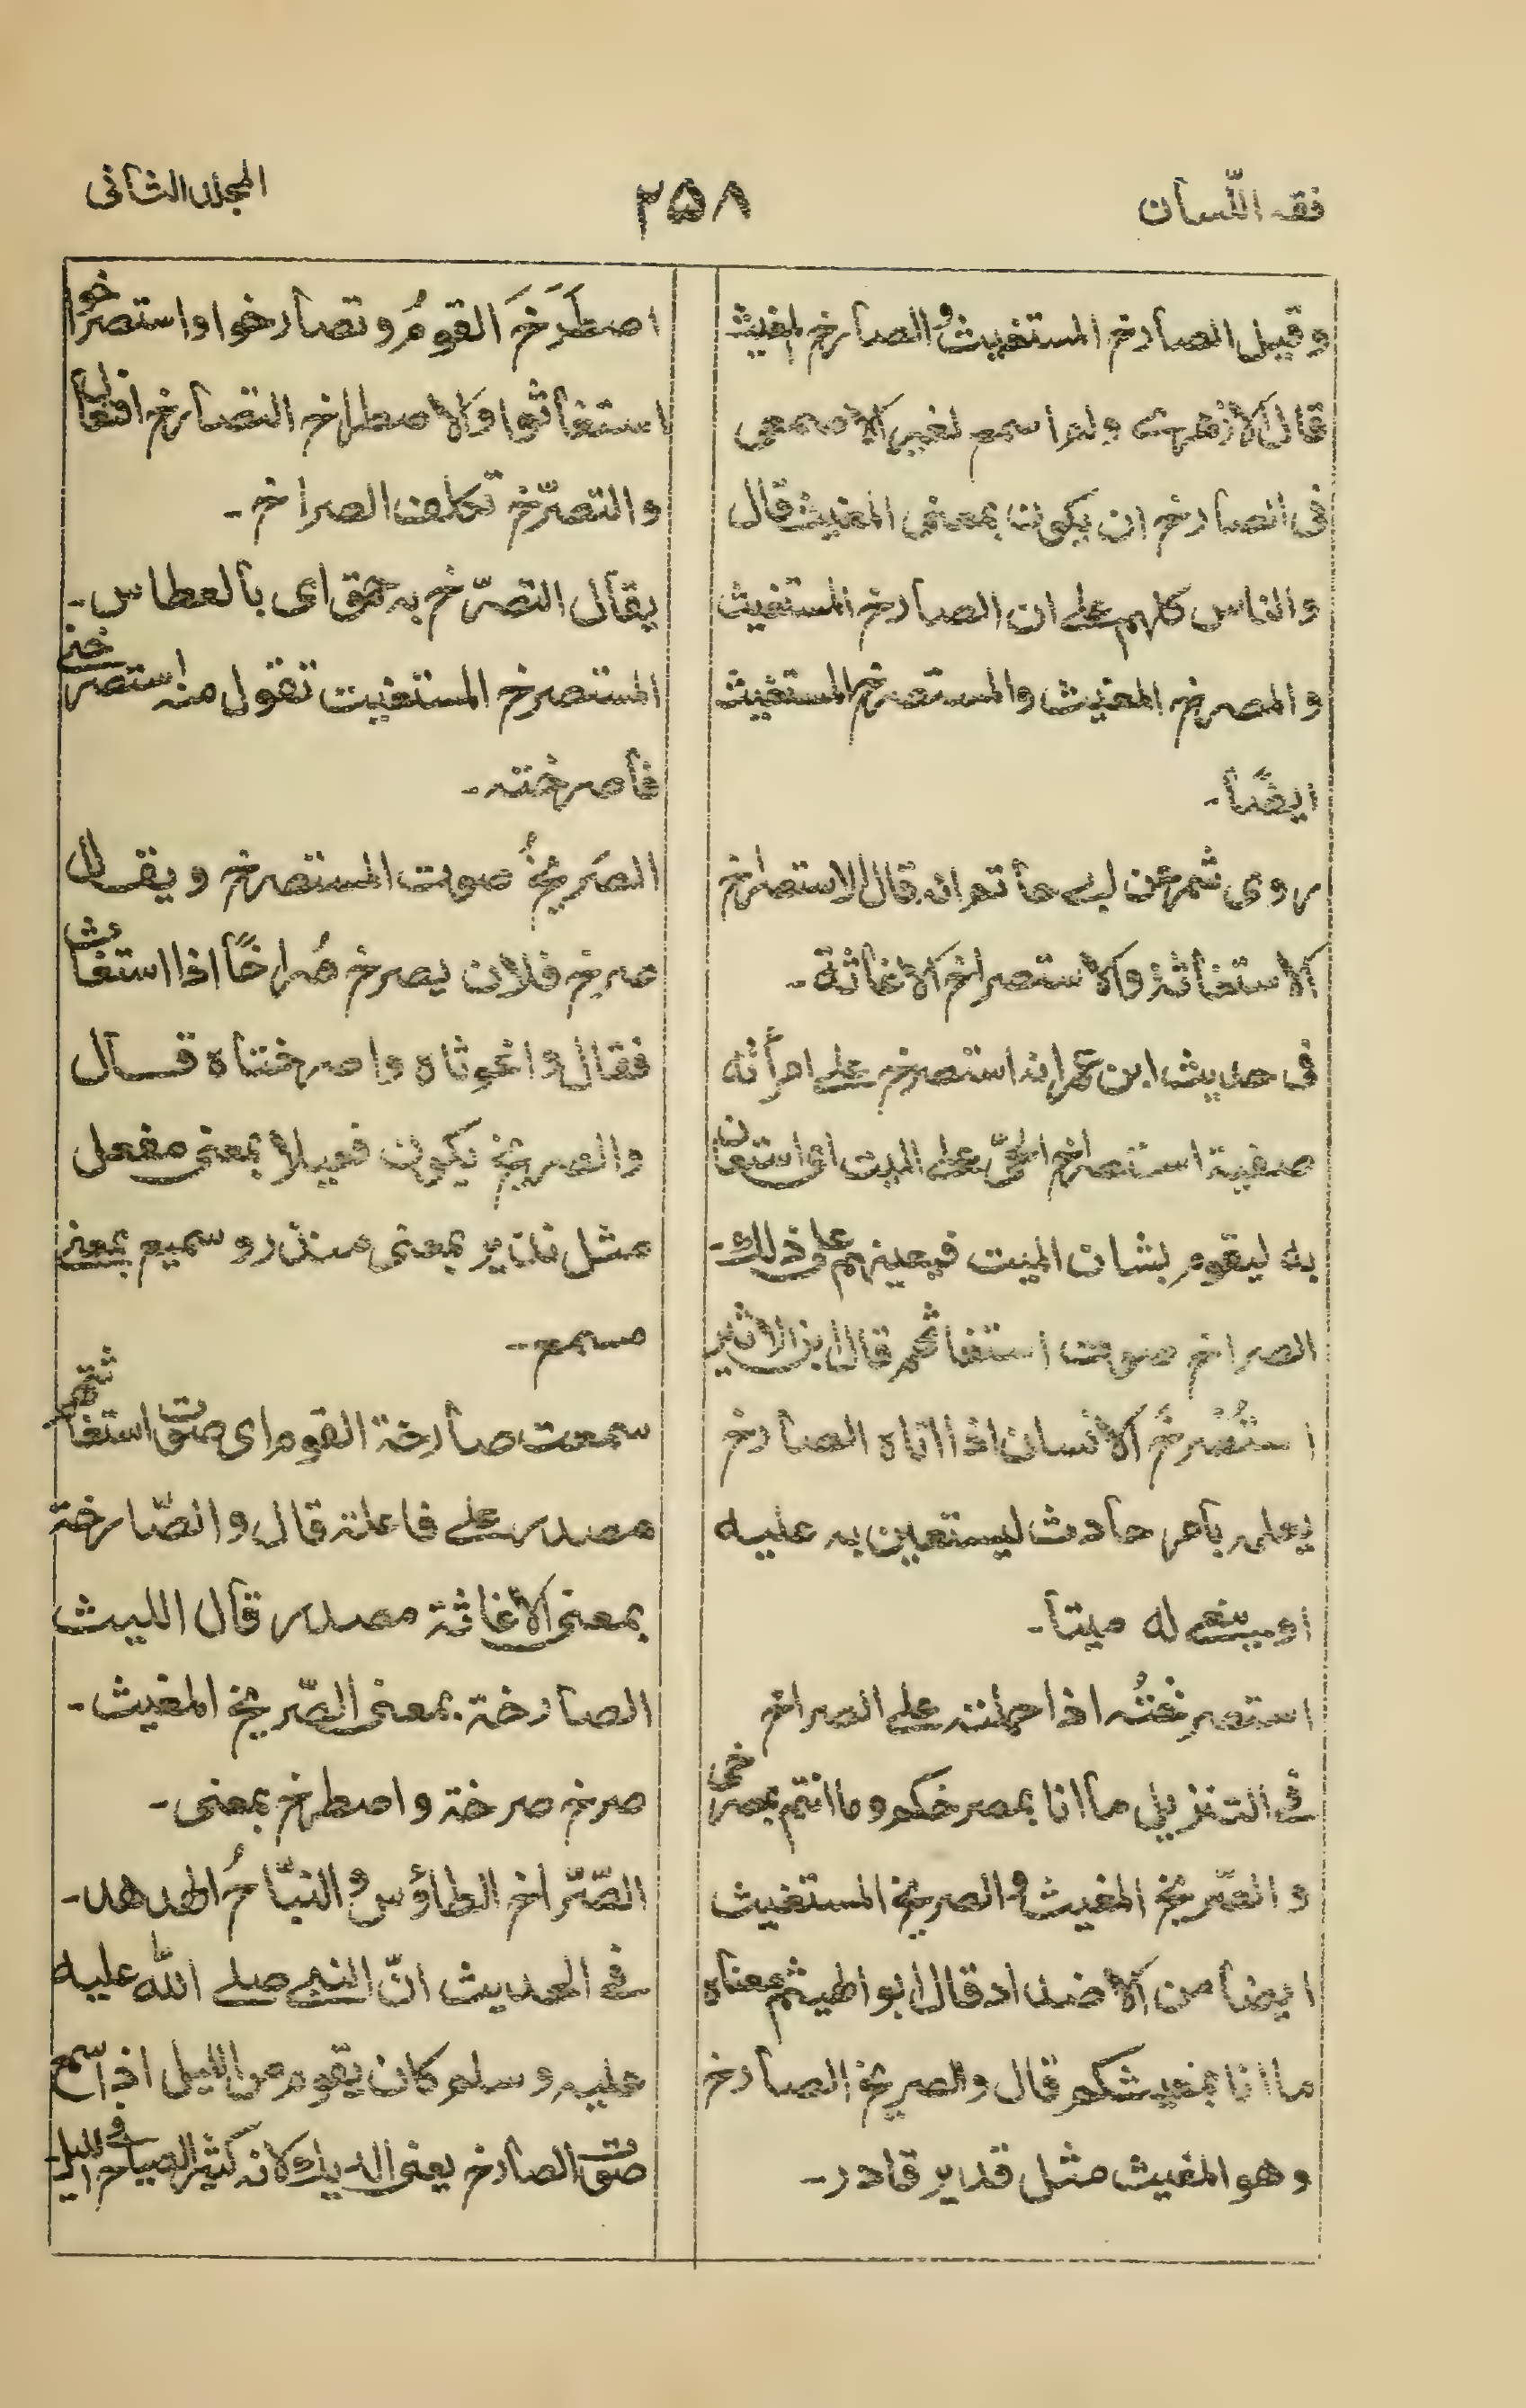 فقه اللّسان
٢٥٨
المجلد الثانى
وقيل الصارخ المستغيث والصارخ المغيث
قال الازهرى ولم اسمع لغير الاصمعى
فى الصارخ ان يكون بمعنى المغيث قال
والناس كلهم على ان الصارخ المستغيث
والمصرخ المغيث والمستصرخ المستغيث
ايضًا۔
روى شمر عن ابى حاتم انه قال الاستصراخ
الاستغاثة والاستصراخ الاغاثة۔
فى حديث ابن عمر انه استصرخ على امرأته
صفية استصراخ الحىّ على الميت اى استعان
به ليقوم بشان الميت فيعينهم على ذلك۔
الصراخ صوت استغاثتهم قال ابن الاثير
استُصْرِخَ الانسان اذا اتاه الصارخ
يعلمه بامر حادث ليستعين به عليه
او ينعى له ميتا۔
استصرختُه اذا حملته على الصراخ
فى التنزيل ما انا بمصرخكم وما انتم بمصرخى
والصّريخ المغيث والصريخ المستغيث
ايضا من الاضداد قال ابو الهيثم معناه
ما انا بمغيثكم قال والصريخ الصارخ
وهو المغيث مثل قدير قادر۔
اصطَرَخَ القومُ وتصارخوا واستصرخوا
استغاثوا والاصطراخ التصارخ افتعال
والتصرّخ تكلف الصراخ۔
يقال التصرّخ به حمق اى بالعطاس۔
المستصرخ المستغيث تقول منه استصرخنى
فاصرخته۔
الصَريخُ صوت المستصرخ ويقال
صرخ فلان يصرخ صُراخًا اذا استغاث
فقال واغوثاه واصرختاه قال
والصريخ يكون فعيلا بمعنى مفعل
مثل نذير بمعنى منذر وسميع بمعنى
مسمع۔
سمعت صارخة القوم اى صوت استغاثتهم
مصدر على فاعلة قال والصّارخة
بمعنى الاغاثة مصدر قال الليث
الصارخة بمعنى الصّريخ المغيث۔
صرخ صرخة واصطرخ بمعنى۔
الصّرّاخ الطاؤس والنبّاحُ الهدهد۔
فى الحديث انّ النبى صلى الله عليه
عليه وسلم كان يقوم من الليل اذا سمع
صوت الصارخ يعنى الديك لانه كثير الصياح فى الليل۔